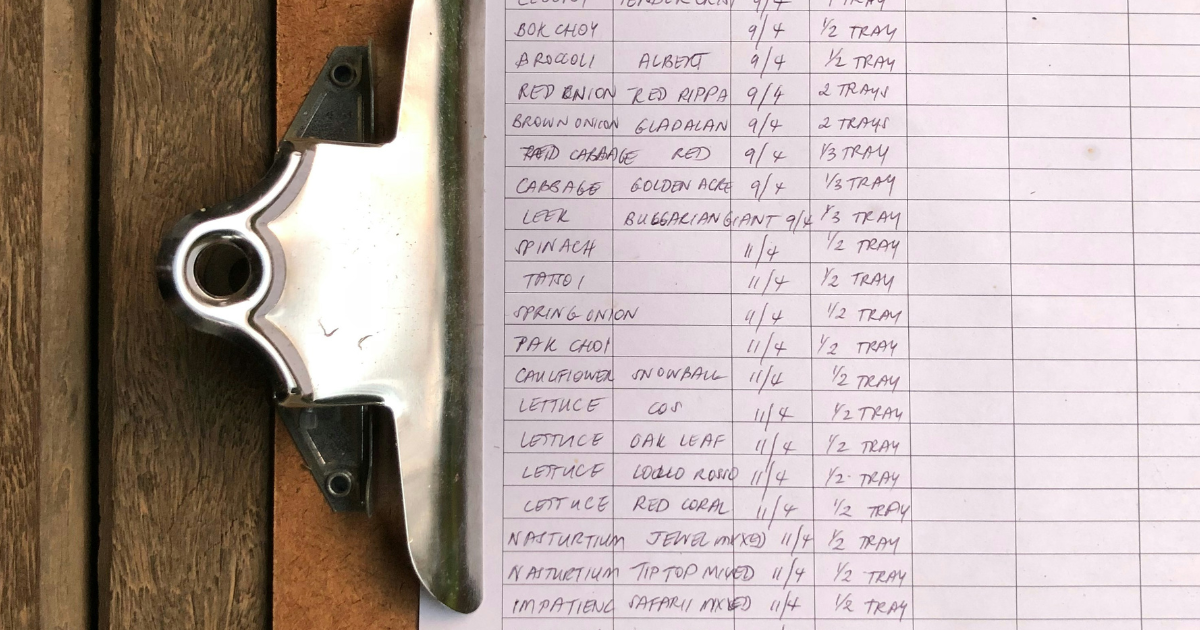 TENDER 9/4 1 TRAY
BOK CHOY 9/4 1/2 TRAY
BROCCOLI ALBERT 9/4 1/2 TRAY
RED ONION RED RIPPA 9/4 2 TRAYS
BROWN ONION GLADALAN 9/4 2 TRAYS
RED CABBAGE RED 9/4 1/3 TRAY
CABBAGE GOLDEN ACRE 9/4 1/3 TRAY
LEEK BULGARIAN GIANT 9/4 1/3 TRAY
SPINACH 11/4 1/2 TRAY
TATSOI 11/4 1/2 TRAY
SPRING ONION 11/4 1/2 TRAY
PAK CHOI 11/4 1/2 TRAY
CAULIFLOWER SNOWBALL 11/4 1/2 TRAY
LETTUCE COS 11/4 1/2 TRAY
LETTUCE OAK LEAF 11/4 1/2 TRAY
LETTUCE LOLLO ROSSO 11/4 1/2 TRAY
LETTUCE RED CORAL 11/4 1/2 TRAY
NASTURTIUM JEWEL MIXED 11/4 1/2 TRAY
NASTURTIUM TIP TOP MIXED 11/4 1/2 TRAY
IMPATIENC SAFARII MIXED 11/4 1/2 TRAY